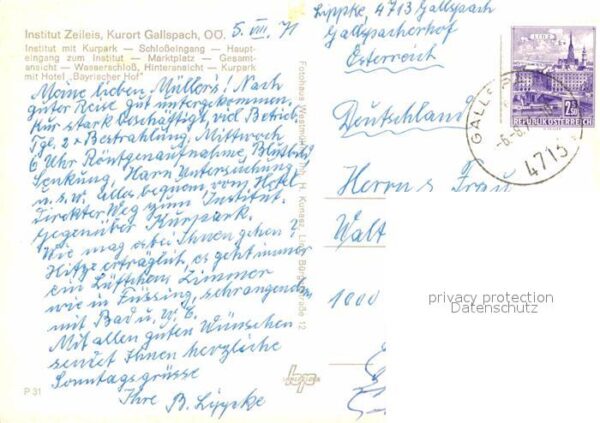 Institut Zeileis, Kurort Gallspach, OÖ.
5. VIII. 71
Institut mit Kurpark — Schloßeingang — Haupt-
eingang zum Institut — Marktplatz — Gesamt-
ansicht — Wasserschloß, Hinteransicht — Kurpark
mit Hotel „Bayrischer Hof"
Meine lieben Müller's! Nach
guter Reise gut untergekommen.
Kur stark beschäftigt, viel Betrieb.
Tgl. 2 x Bestrahlung, Mittwoch
6 Uhr Röntgenaufnahme, Blutbild
Senkung, Harn Untersuchung
u.s.w. alles bequem, vom Hotel
direkter Weg zum Institut.
Gegenüber Kurpark.
Wie mag es bei Ihnen gehen?
Hitze erträglich, es geht immer
ein Lüftchen, Zimmer
wie in Füssing,
mit Bad u. W.C.
Mit allen guten Wünschen
sendet Ihnen herzliche
Sonntagsgrüsse
Ihre B. Lippke
P 31
Fotohaus Westmüller, Inh. H. Kunasz, Linz, Bürgerstraße 12
Lippke 4713 Gallspach
Gallspacherhof
Österreich
Deutschland
Herrn u Frau
Walt
1000
LINZ
2.50
REPUBLIK ÖSTERREICH
GALLSP
-6.8.7
4713
privacy protection
Datenschutz